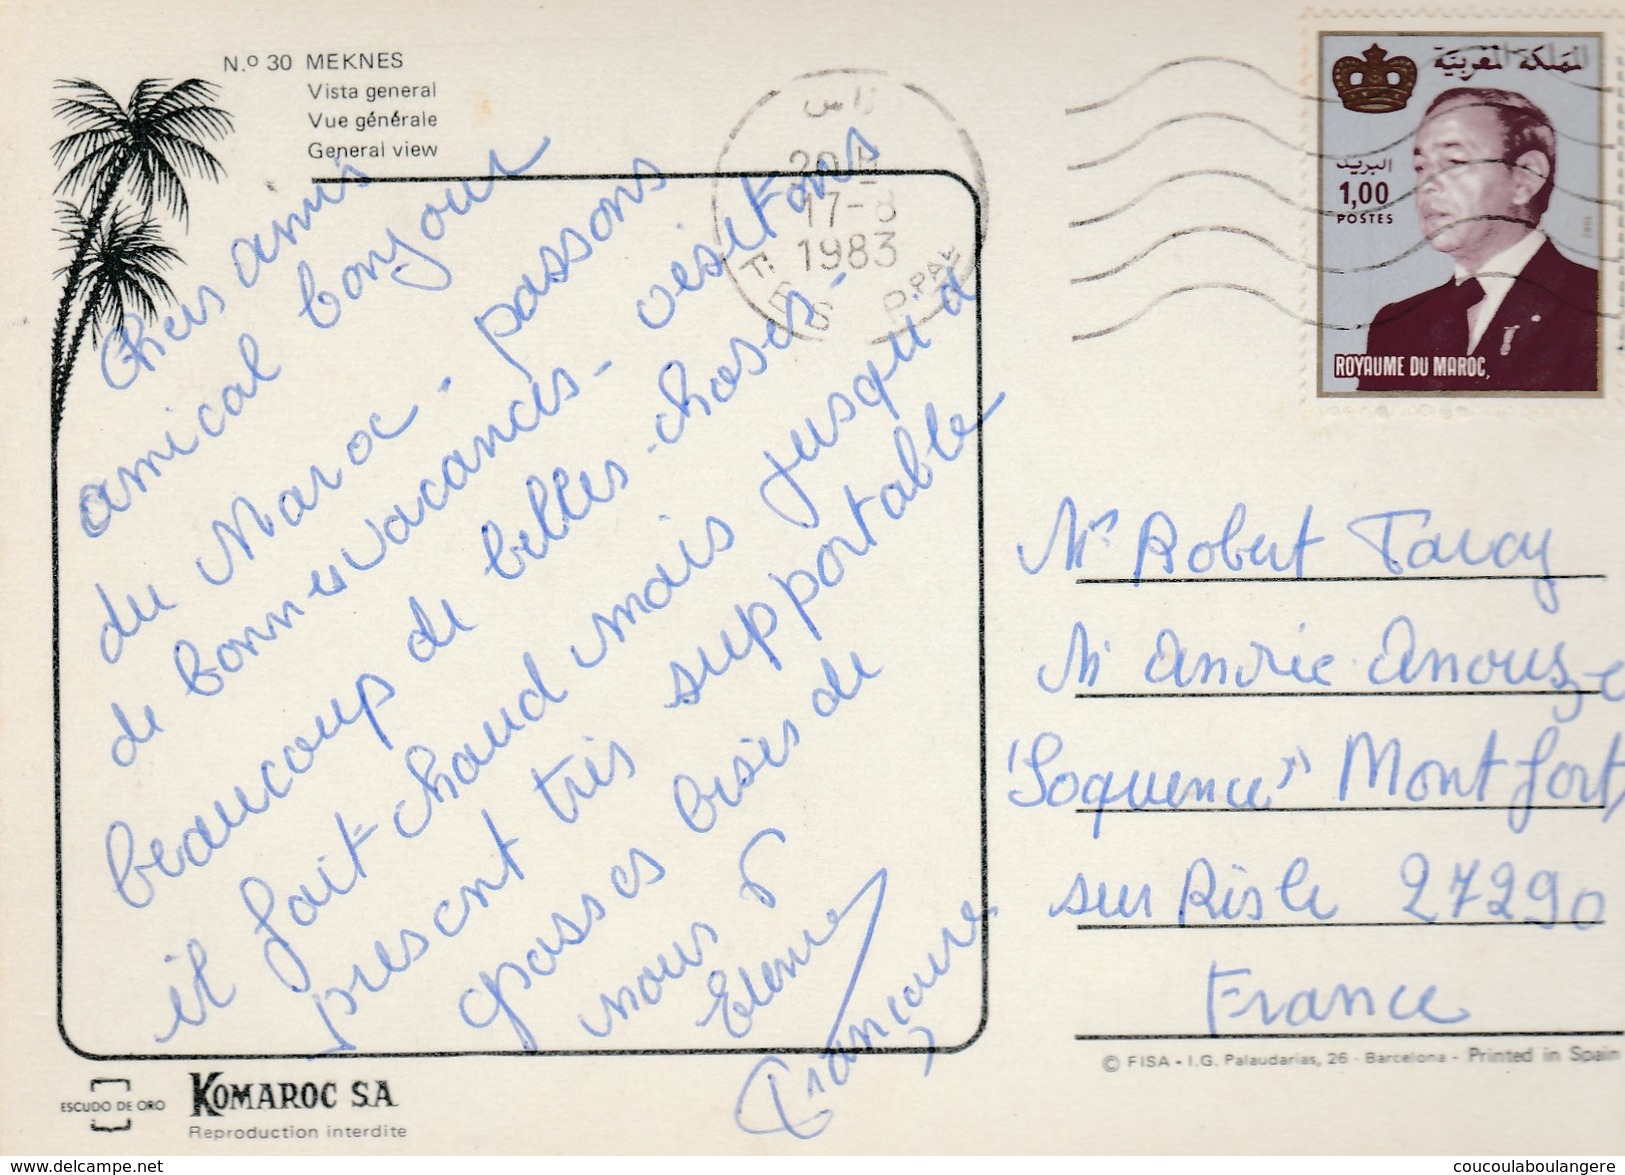 N.º 30 MEKNES
Vista general
Vue générale
General view
Chers amis
amical bonjour
du Maroc - passons
de bonnes vacances - visitons
beaucoup de belles choses -
il fait chaud mais jusqu'à
présent très supportable
grosses bises de
nous 6
Etienne
Françoise
فاس
20H
17-8
1983
FES PPAL
المملكة المغربية
البريد
1,00
POSTES
1982
ROYAUME DU MAROC
Mr Robert Tavoy
Mr André
"Soquence" Montfort
sur Risle 27290
France
© FISA - I.G. Palaudarias, 26 - Barcelona - Printed in Spain
ESCUDO DE ORO
KOMAROC S.A.
Reproduction interdite
www.delcampe.net
coucoulaboulangere